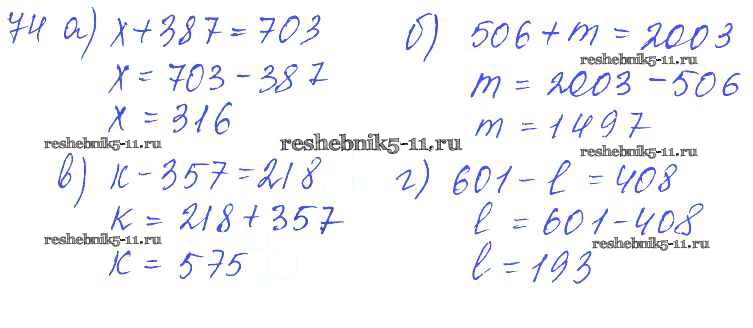 74 а) x + 387 = 703
x = 703 - 387
x = 316
reshebnik5-11.ru
б) 506 + m = 2003
reshebnik5-11.ru
m = 2003 - 506
m = 1497
reshebnik5-11.ru
reshebnik5-11.ru
в) к - 357 = 218
к = 218 + 357
reshebnik5-11.ru
к = 575
г) 601 - l = 408
l = 601 - 408
reshebnik5-11.ru
l = 193